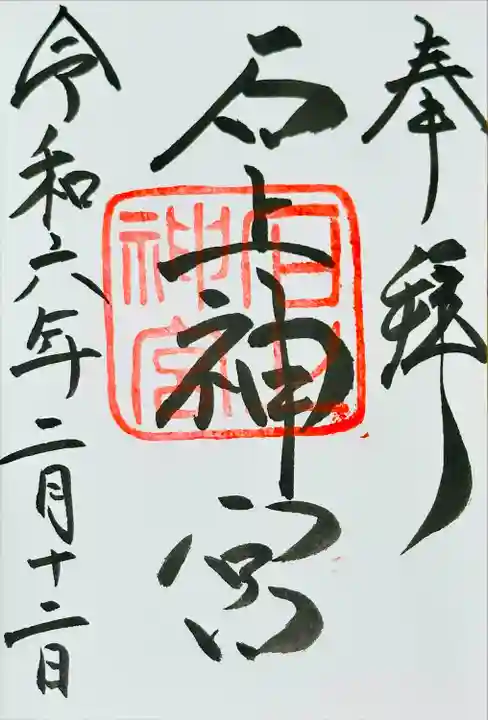 奉拝
石上神宮
石上神宮
令和六年二月十二日